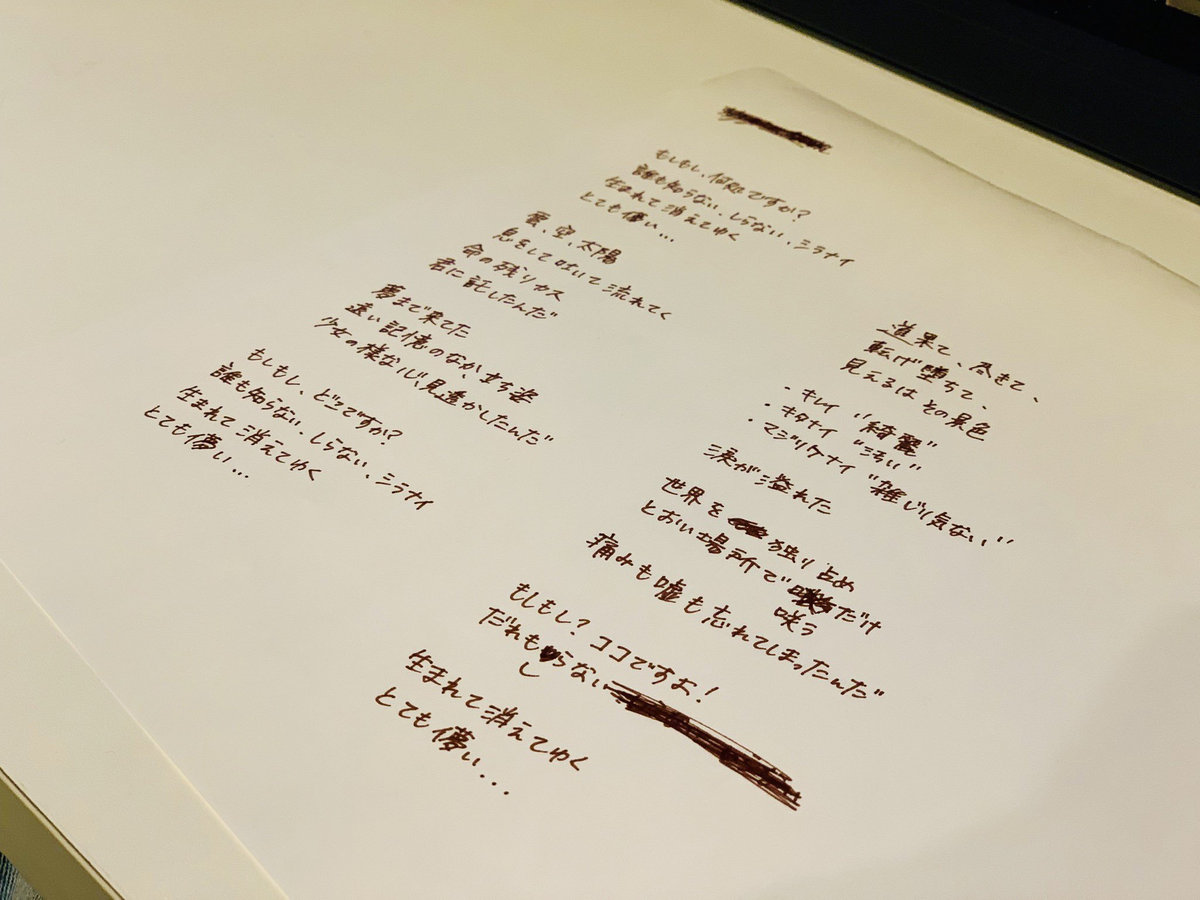 もしもし、何処ですか?
誰も知らない、しらない、シラナイ
生まれて消えてゆく
とても儚い...
雲、空、太陽
息をして吐いて流れてく
命の残りカス
君に託したんだ"
夢まで来てた
遠い記憶のなか、立ち姿
少女の様な心、見透かしたんだ"
もしもし、どこですか?
誰も知らない、しらない、シラナイ
生まれて消えてゆく
とても儚い...
道果て、尽きて、
転げ堕ちて、
見えるは その景色
・キレイ "綺麗"
・キタナイ "汚い"
・マジリケナイ "雑じり気ない"
涙が溢れた
世界を 独り占め
とおい場所で だけ
咲う
痛みも嘘も忘れてしまったんだ"
もしもし?ココですよ!
だれも らない
し
生まれて消えてゆく
とても儚い...